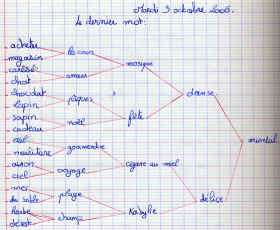 Mardi 3 octobre 2006.
Le dernier mot.
acheter
magasin
la cour
caresse
amour
musique
chat
chocolat
pâques
lapin
fête
danse
sapin
noël
cadeau
miel
gourmandise
nourriture
cigare au miel
mental
avion
voyage
ciel
mer
plage
du sable
délice
herbe
champ
Kabylie
désert